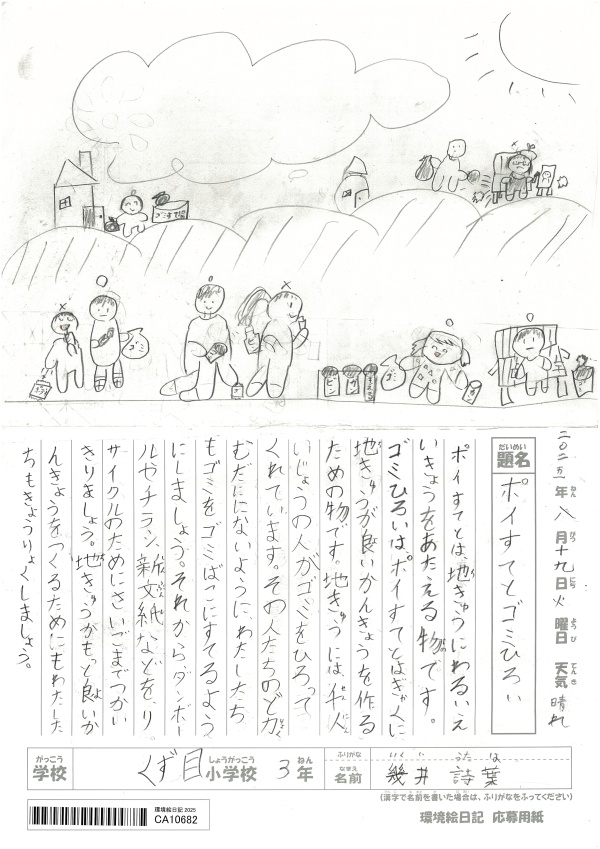 ゴミすて場
ゴミ
ゴミ
ビン
カン
もえる
ゴミ
二〇二五年八月十九日火曜日 天気 晴れ
ねん がつ にち ようび てんき
だいめい
題名 ポイすてとゴミひろい
ポイすてとは、地きゅうにわるいえ
いきょうをあたえる物です。
ゴミひろいは、ポイすてとはぎゃくに
地きゅうが良いかんきょうを作る
ための物です。地きゅうには、千人
いじょうの人がゴミをひろって
くれています。その人たちのど力
むだににないようにわたしたち
もゴミをゴミばこにすてるよう
にしましょう。それからダンボー
ルやチラシ、新文紙などを、リ
サイクルのためにさいごまでつかい
きりましょう。地きゅうがもっと良いか
んきょうをつくるためにもわたした
ちもきょうりょくしましょう。
がっこう しょうがっこう ねん ふりがな いくい うたは
学校 くず目小学校 3年 なまえ 名前 幾井 詩葉
(漢字で名前を書いた場合は、ふりがなをふってください)
環境絵日記 2025
CA10682
環境絵日記 応募用紙